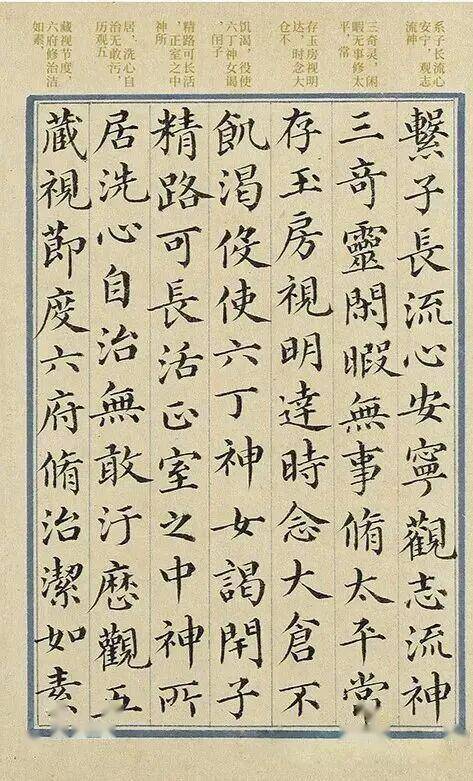 系子长流心
安宁，观志
流神
三奇灵，闲
暇无事修太
平，常
存玉房视明
达，时念大
仓不
饥渴，役使
六丁神女谒
，闭子
精路可长活
，正室之中
神所
居，洗心自
治无敢污，
历观五
藏视节度，
六府修治洁
如素
繫子長流心安寧觀志流神
三奇靈閑暇無事脩太平常
存玉房視明達時念大倉不
飢渴役使六丁神女謁閇子
精路可長活正室之中神所
居洗心自治無敢汙歷觀五
藏視節度六府脩治潔如素